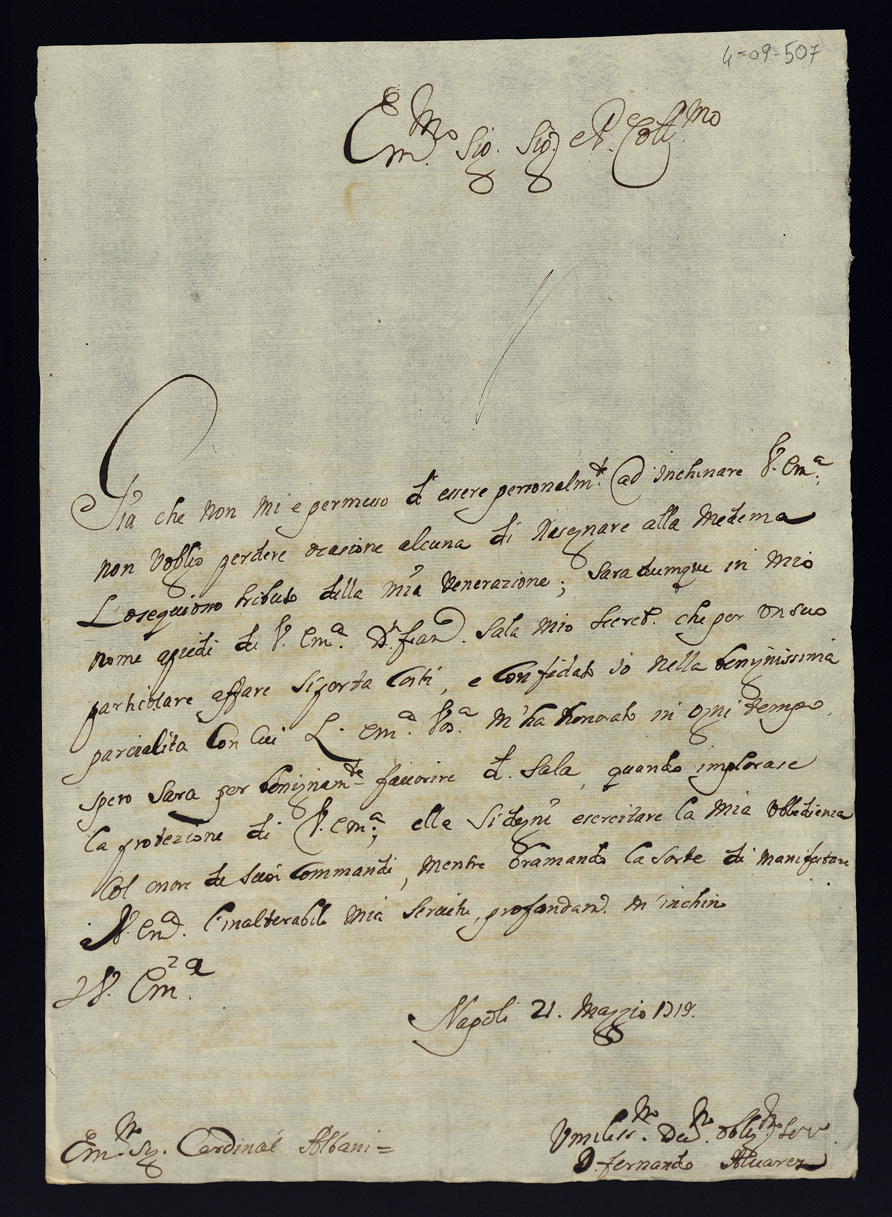 4-09-507
Em.mo Sig. Sig. e P. Coll.mo
Gia che non mi e permesso d' essere personalm.te ad inchinare V. Em.a;
non voglio perdere ocasione alcuna di rasegnare alla Medema
L'osequioso tributo della mia venerazione; Sara dumque in mio
nome apiedi di V. Em.a D. Fran. Sala mio Secret. che per un suo
particolare affare si porta Costi, e Confidato io nella benignissima
parcialita Con Cui L. Em.a V.ra m'ha honorato in ogni tempo,
spero Sara per benignam.te favorire d. Sala, quando implorase
la protezione di V. Em.a; ella si degni esercitare la mia obbedienza
Col onore de suoi Commandi, mentre bramando la sorte di manifestare
A V. Em.a l'inalterabile mia Servitu, profondam. m'inchino
D. V. Em.za
Napoli 21. Maggio 1719.
Em.mo Sig. Cardinal Albani=
Umiliss.mo Dev.mo Obblig.mo Serv.
D. Fernando Alvarez